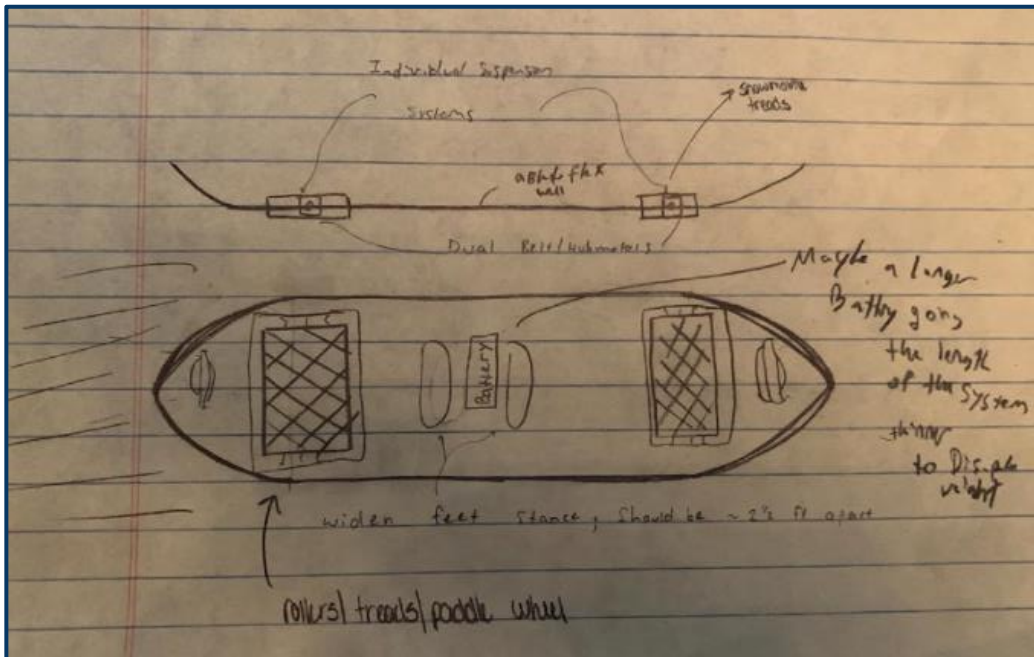 Individual Suspension
Systems
snowmobile
treads
able to flex
well
Dual Belt/Hubmotors
Maybe a larger
Battery going
the length
of the system
thinner
to
weight
Battery
widen feet stance, should be ~ 2's ft apart
rollers/treads/paddle wheel